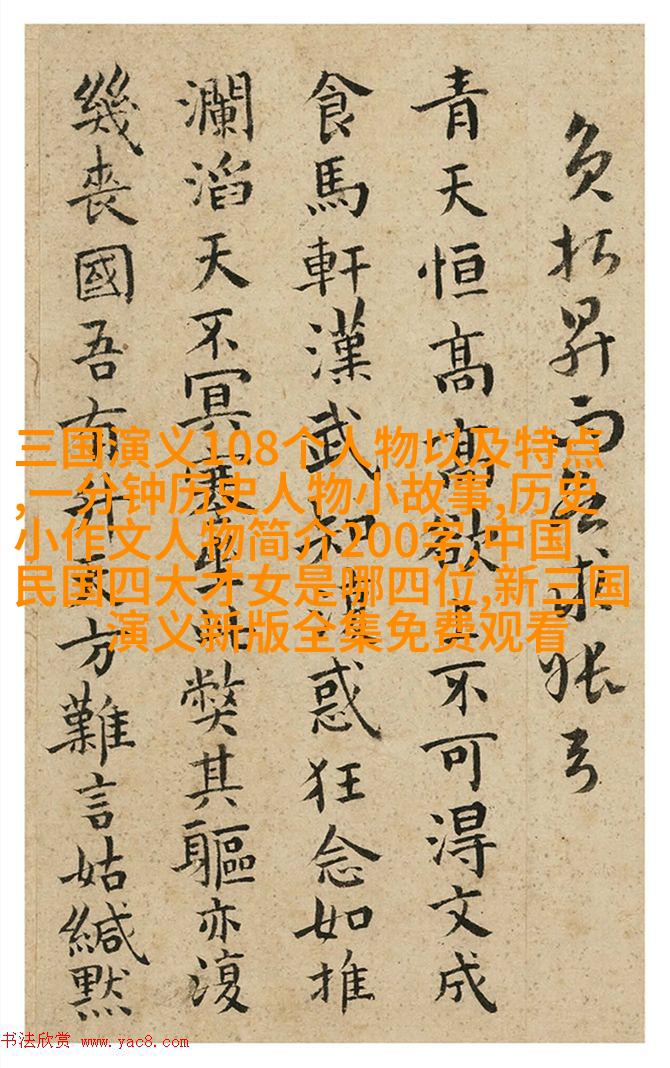 昇而求
青天恒髙欲上不可得文成
食馬軒漢武知惑狂念如推
瀾滔天不冥弊其軀亦復
幾喪國吾有升天方難言姑緘默
三国演义108个人物以及特点
,一分钟历史人物小故事,历史
小作文人物简介200字,中国
民国四大才女是哪四位,新三国
演义新版全集免费观看
书法欣赏 www.yac8.com